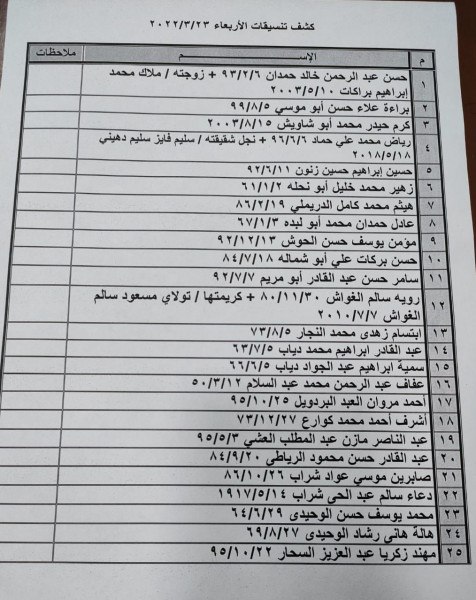 كشف تنسيقات الأربعاء ٢٠٢٢/٣/٢٣
م الإســـم ملاحظات
١ حسن عبد الرحمن خالد حمدان ٩٣/٢/٦ + زوجته / ملاك محمد
إبراهيم براكات ٢٠٠٣/٥/١٠
٢ براءة علاء حسن أبو موسي ٩٩/٨/٥
٣ كرم حيدر محمد أبو شاويش ٢٠٠٣/٨/١٥
٤ رياض محمد علي حماد ٩٦/٦/٦ + نجل شقيقته / سليم فايز سليم دهيني
٢٠١٨/٥/١٨
٥ حسين إبراهيم حسين زنون ٩٢/٦/١١
٦ زهير محمد خليل أبو نحله ٦١/١/٢
٧ هيثم محمد كامل الدريملي ٨٦/٢/١٩
٨ عادل حمدان محمد أبو لبده ٦٧/١/٣
٩ مؤمن يوسف حسن الحوش ٩٢/١٢/١٣
١٠ حسن بركات علي أبو شماله ٨٤/٧/١٨
١١ سامر حسن عبد القادر أبو مريم ٩٢/٧/٧
١٢ رويه سالم الغواش ٨٠/١١/٣٠ + كريمتها / تولاي مسعود سالم
الغواش ٢٠١٠/٧/٧
١٣ ابتسام زهدى محمد النجار ٧٣/٨/٥
١٤ عبد القادر ابراهيم محمد دياب ٦٣/٧/٥
١٥ سمية ابراهيم عبد الجواد دياب ٦٦/٦/٥
١٦ عفاف عبد الرحمن محمد عبد السلام ٥٠/٣/١٢
١٧ أحمد مروان العبد البردويل ٩٥/١٠/٢٥
١٨ أشرف أحمد محمد كوارع ٧٣/١٢/٢٧
١٩ عبد الناصر مازن عبد المطلب العشي ٩٥/٥/٣
٢٠ عبد القادر حسن محمود الرياطي ٨٤/٩/٢٠
٢١ صابرين موسي عواد شراب ٨٦/١٠/٢٦
٢٢ دعاء سالم عبد الحي شراب ١٩١٧/٥/١٤
٢٣ محمد يوسف حسن الوحيدى ٦٤/٦/٢٩
٢٤ هالة هانى رشاد الوحيدى ٦٩/٨/٢٧
٢٥ مهند زكريا عبد العزيز السحار ٩٥/١٠/٢٢